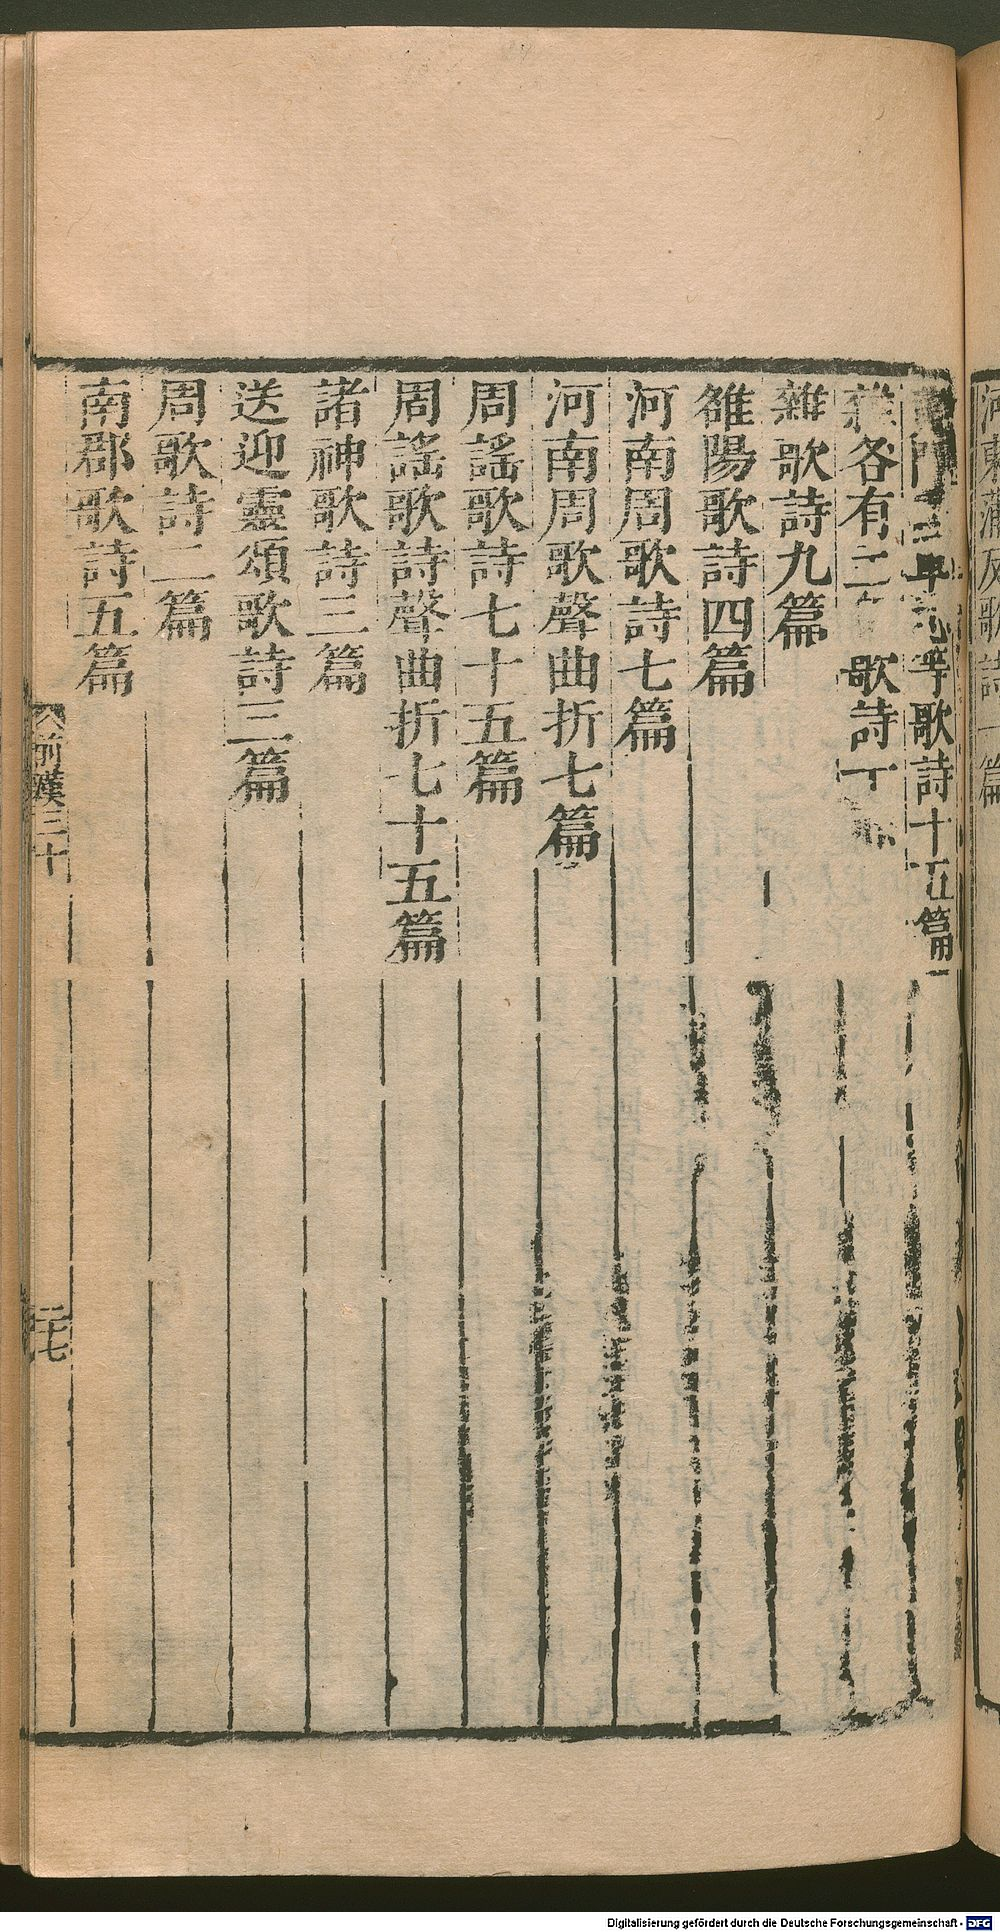 河東蒲反歌詩一篇
門等歌詩十五篇
雜各有歌詩
雜歌詩九篇
雒陽歌詩四篇
河南周歌詩七篇
河南周歌聲曲折七篇
周謠歌詩七十五篇
周謠歌詩聲曲折七十五篇
諸神歌詩三篇
送迎靈頌歌詩三篇
周歌詩二篇
南郡歌詩五篇
前漢三十
二十七
Digitalisierung gefördert durch die Deutsche Forschungsgemeinschaft - DFG